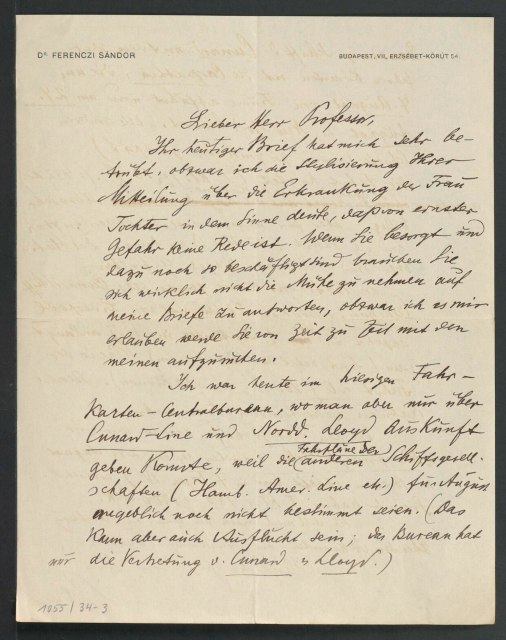 Dr. FERENCZI SÁNDOR
BUDAPEST, VII, ERZSÉBET-KÖRÚT 54.
Lieber Herr Professor,
Ihr heutiger Brief hat mich sehr be-
trübt, obzwar ich die Stylisierung Ihrer
Mitteilung über die Erkrankung der Frau
Tochter in dem Sinne deute, daß von ernster
Gefahr keine Rede ist. Wenn Sie besorgt und
dazu noch so beschäftigt sind brauchen Sie
sich wirklich nicht die Mühe zu nehmen auf
meine Briefe zu antworten, obzwar ich es mir
erlauben werde Sie von Zeit zu Zeit mit den
meinen aufzusuchen.
Ich war heute im hiesigen Fahr-
karten-Centralbureau, wo man aber nur über
Cunard-Line und Nordd. Lloyd Auskunft
geben konnte, weil die Fahrpläne der
anderen Schiffsgesell-
schaften (Hamb. Amer. Line etc.) für August
angeblich noch nicht bestimmt seien. (Das
kann aber auch Ausflucht sein; das Bureau hat
nur die Vertretung v. Cunard u Lloyd.)
1055/34-3